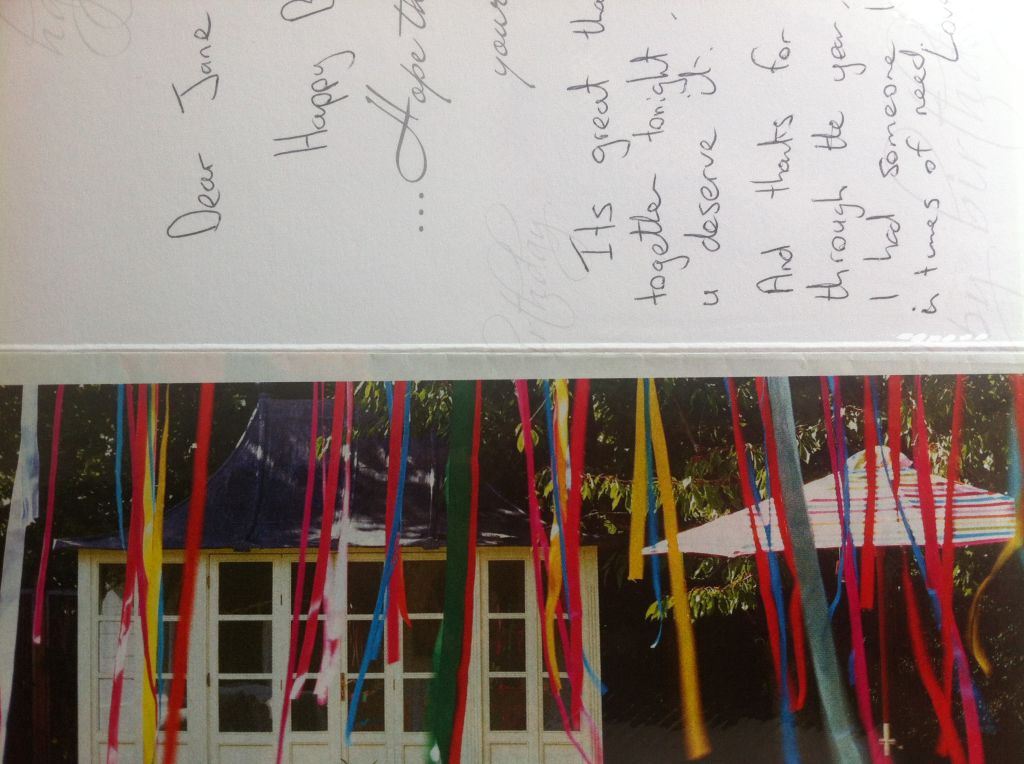 Dear Jane
Happy B
...Hope th
your
Its great tha
together tonight.
u deserve it.
And thanks for
through the year.
I had someone I
in times of need.
Love